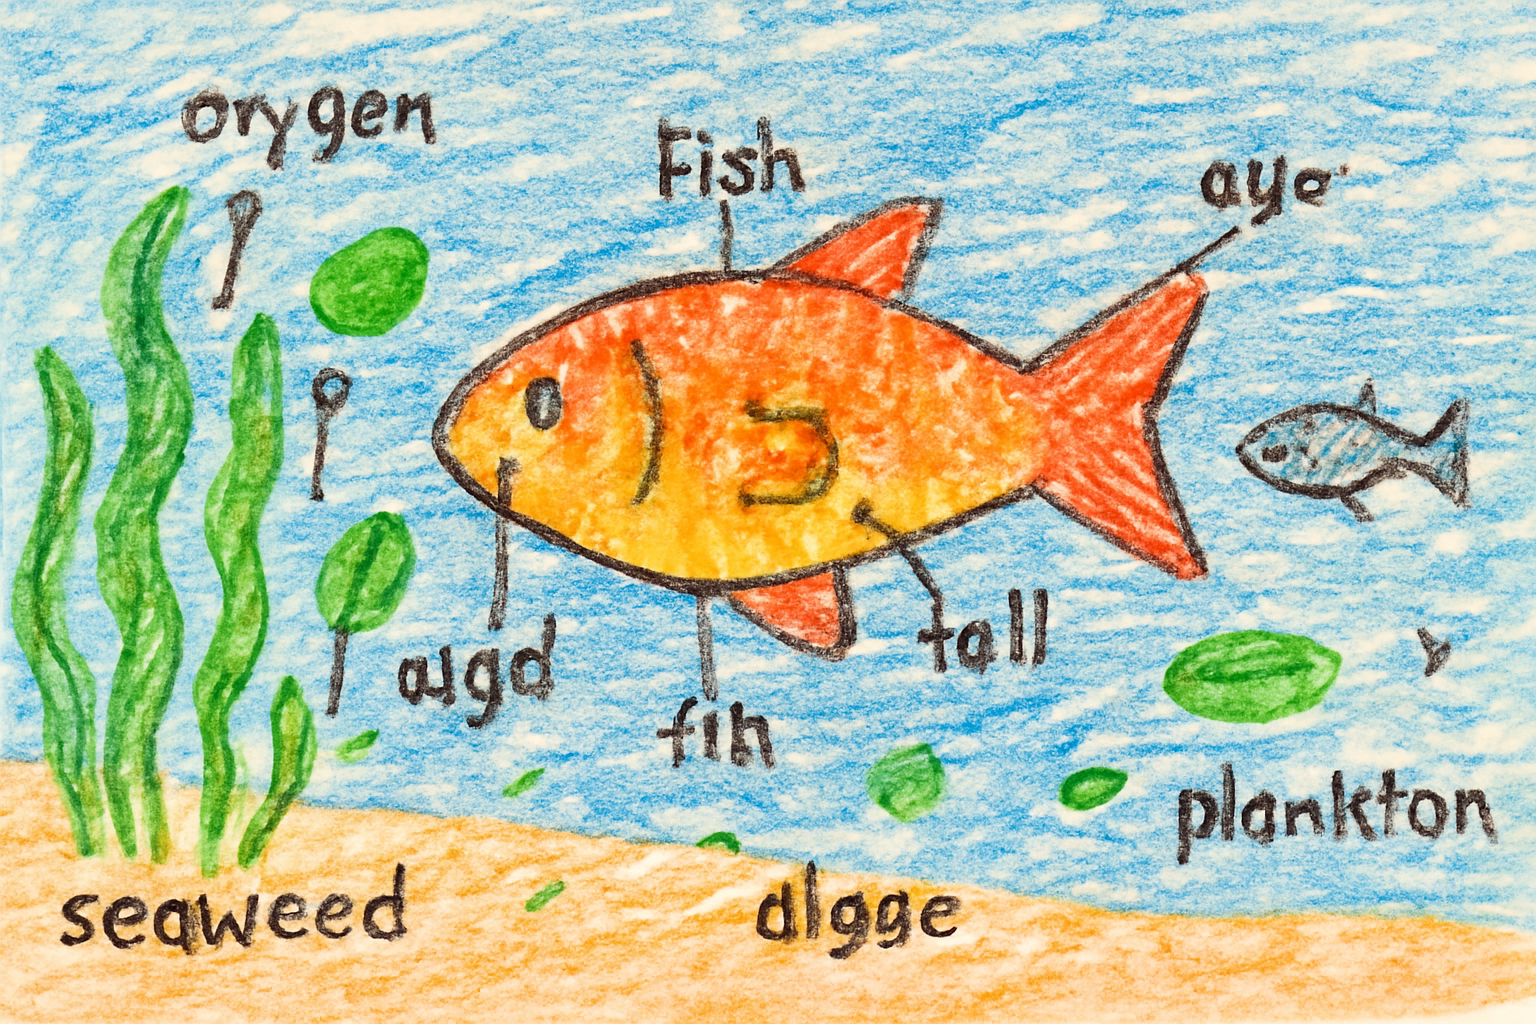 orygen
Fish
aye
algd
tall
fih
plankton
seaweed
dlgge